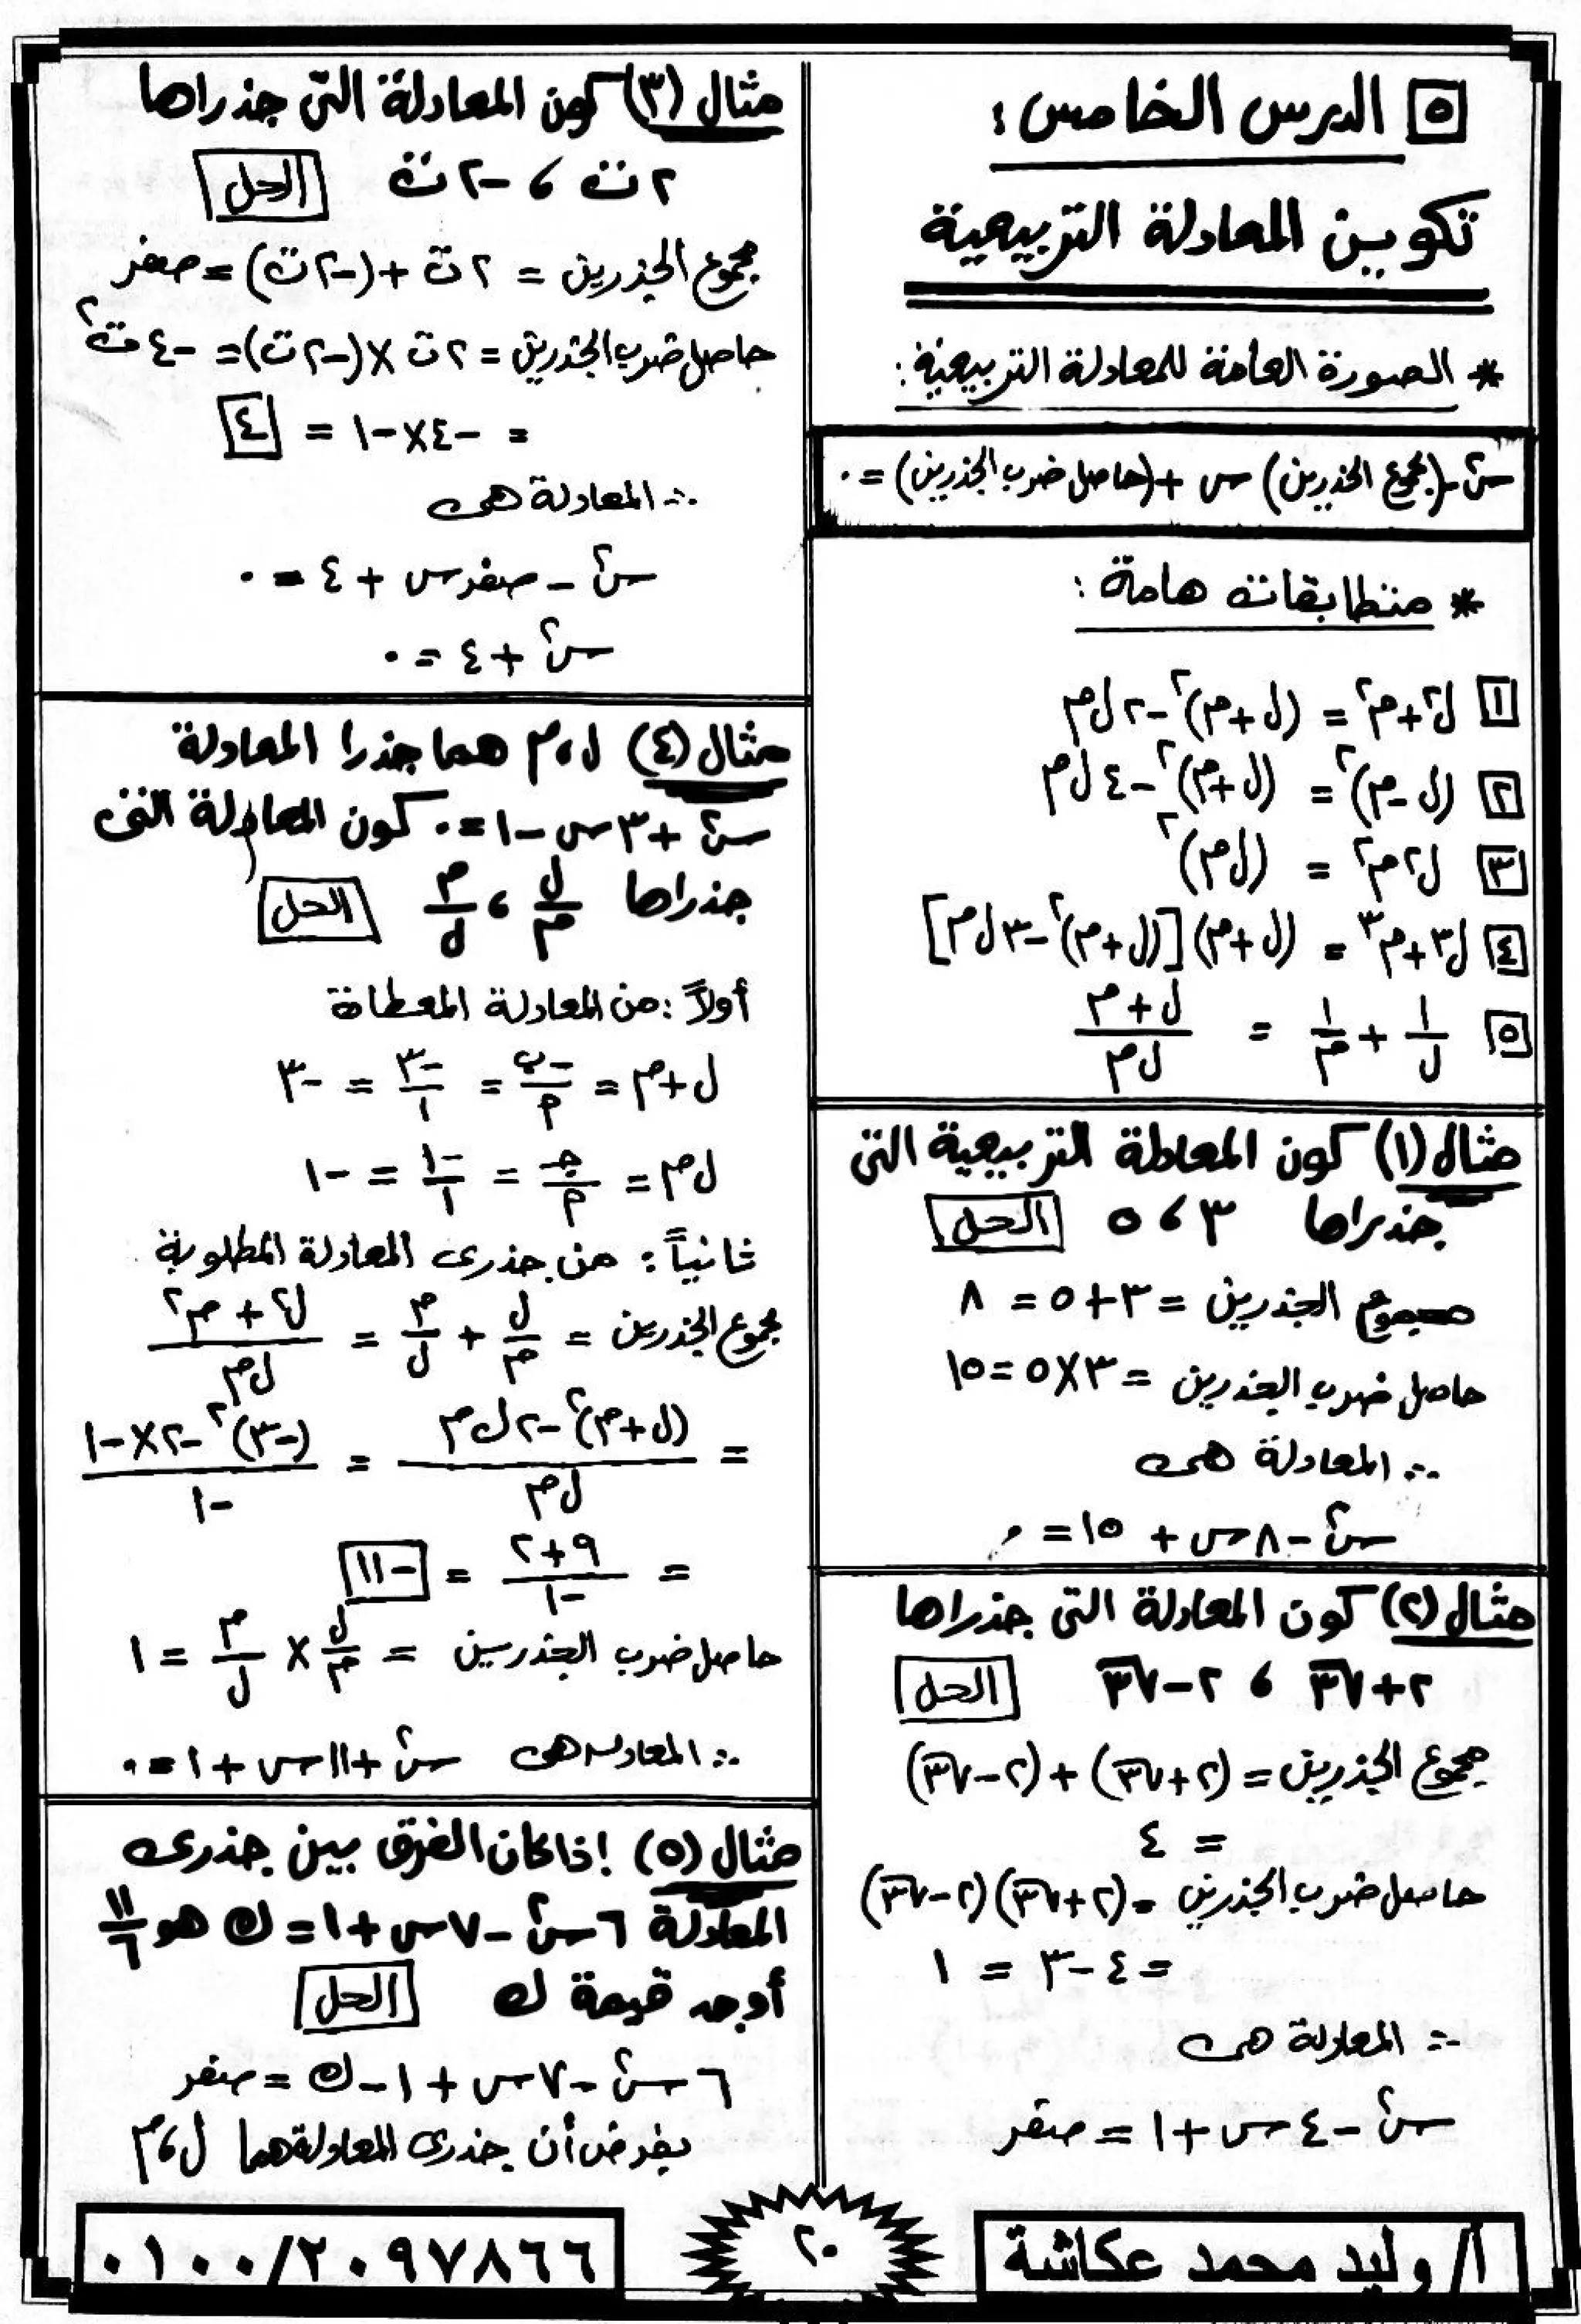 ٥ الدرس الخامس :
تكوين المعادلة التربيعية
* الصورة العامة للمعادلة التربيعية :
س٢ - (مجموع الجذرين) س + (حاصل ضرب الجذرين) = ٠
* متطابقات هامة :
١ ل٢ + م٢ = (ل + م)٢ - ٢ ل م
٢ (ل - م)٢ = (ل + م)٢ - ٤ ل م
٣ ل٢ م٢ = (ل م)٢
٤ ل٣ + م٣ = (ل + م) [(ل + م)٢ - ٣ ل م]
٥ ١/ل + ١/م = (ل + م)/(ل م)
مثال (١) كون المعادلة التربيعية التى
جذراها ٣ ، ٥ الحل
مجموع الجذرين = ٣ + ٥ = ٨
حاصل ضرب الجذرين = ٣ × ٥ = ١٥
∴ المعادلة هى
س٢ - ٨ س + ١٥ = ٠
مثال (٢) كون المعادلة التى جذراها
٢ + √٣ ، ٢ - √٣ الحل
مجموع الجذرين = (٢ + √٣) + (٢ - √٣)
= ٤
حاصل ضرب الجذرين = (٢ + √٣) (٢ - √٣)
= ٤ - ٣ = ١
∴ المعادلة هى
س٢ - ٤ س + ١ = صفر
مثال (٣) كون المعادلة التى جذراها
٢ت ، -٢ت الحل
مجموع الجذرين = ٢ت + (-٢ت) = صفر
حاصل ضرب الجذرين = ٢ت × (-٢ت) = -٤ت٢
= -٤ × -١ = ٤
∴ المعادلة هى
س٢ - صفر س + ٤ = ٠
س٢ + ٤ = ٠
مثال (٤) ل ، م هما جذرا المعادلة
س٢ + ٣ س - ١ = ٠ كون المعادلة التى
جذراها ل/م ، م/ل الحل
أولاً : من المعادلة المعطاة
ل + م = -ب/م = -٣/١ = -٣
ل م = جـ/م = -١/١ = -١
ثانياً : من جذرى المعادلة المطلوبة
مجموع الجذرين = ل/م + م/ل = (ل٢ + م٢)/(ل م)
= ((ل + م)٢ - ٢ ل م)/(ل م) = ((-٣)٢ - ٢ × -١)/-١
= (٩ + ٢)/-١ = -١١
حاصل ضرب الجذرين = ل/م × م/ل = ١
∴ المعادلة هى س٢ + ١١ س + ١ = ٠
مثال (٥) إذا كان الفرق بين جذرى
المعادلة ٦ س٢ - ٧ س + ١ = ك هو ١١/٦
أوجد قيمة ك الحل
٦ س٢ - ٧ س + ١ - ك = صفر
بفرض أن جذرى المعادلة هما ل ، م
أ/ وليد محمد عكاشة
٢٠
٠١٠٠/٢٠٩٧٨٦٦